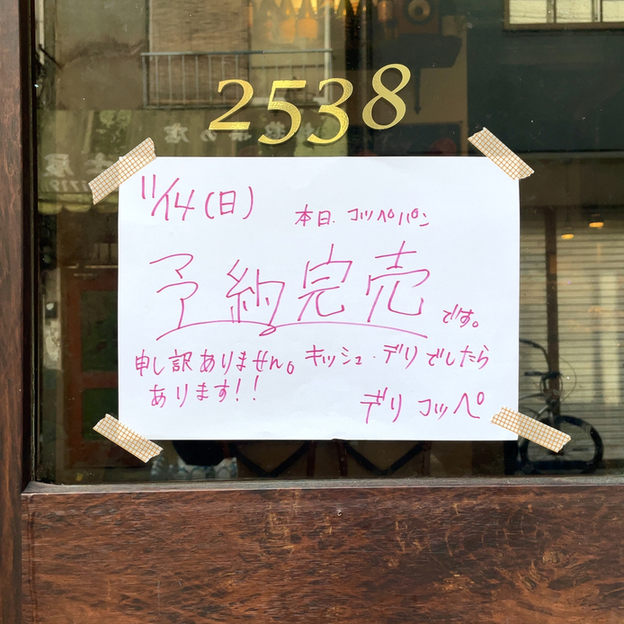 2538
11/14(日)
本日 コッペパン
予約完売
です。
申し訳ありません。キッシュ・デリでしたら
あります!!
デリ コッペ